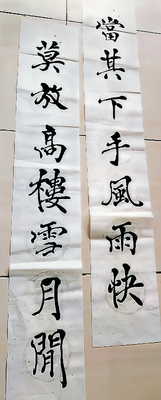 當其下手風雨快
莫放高樓雪月閒